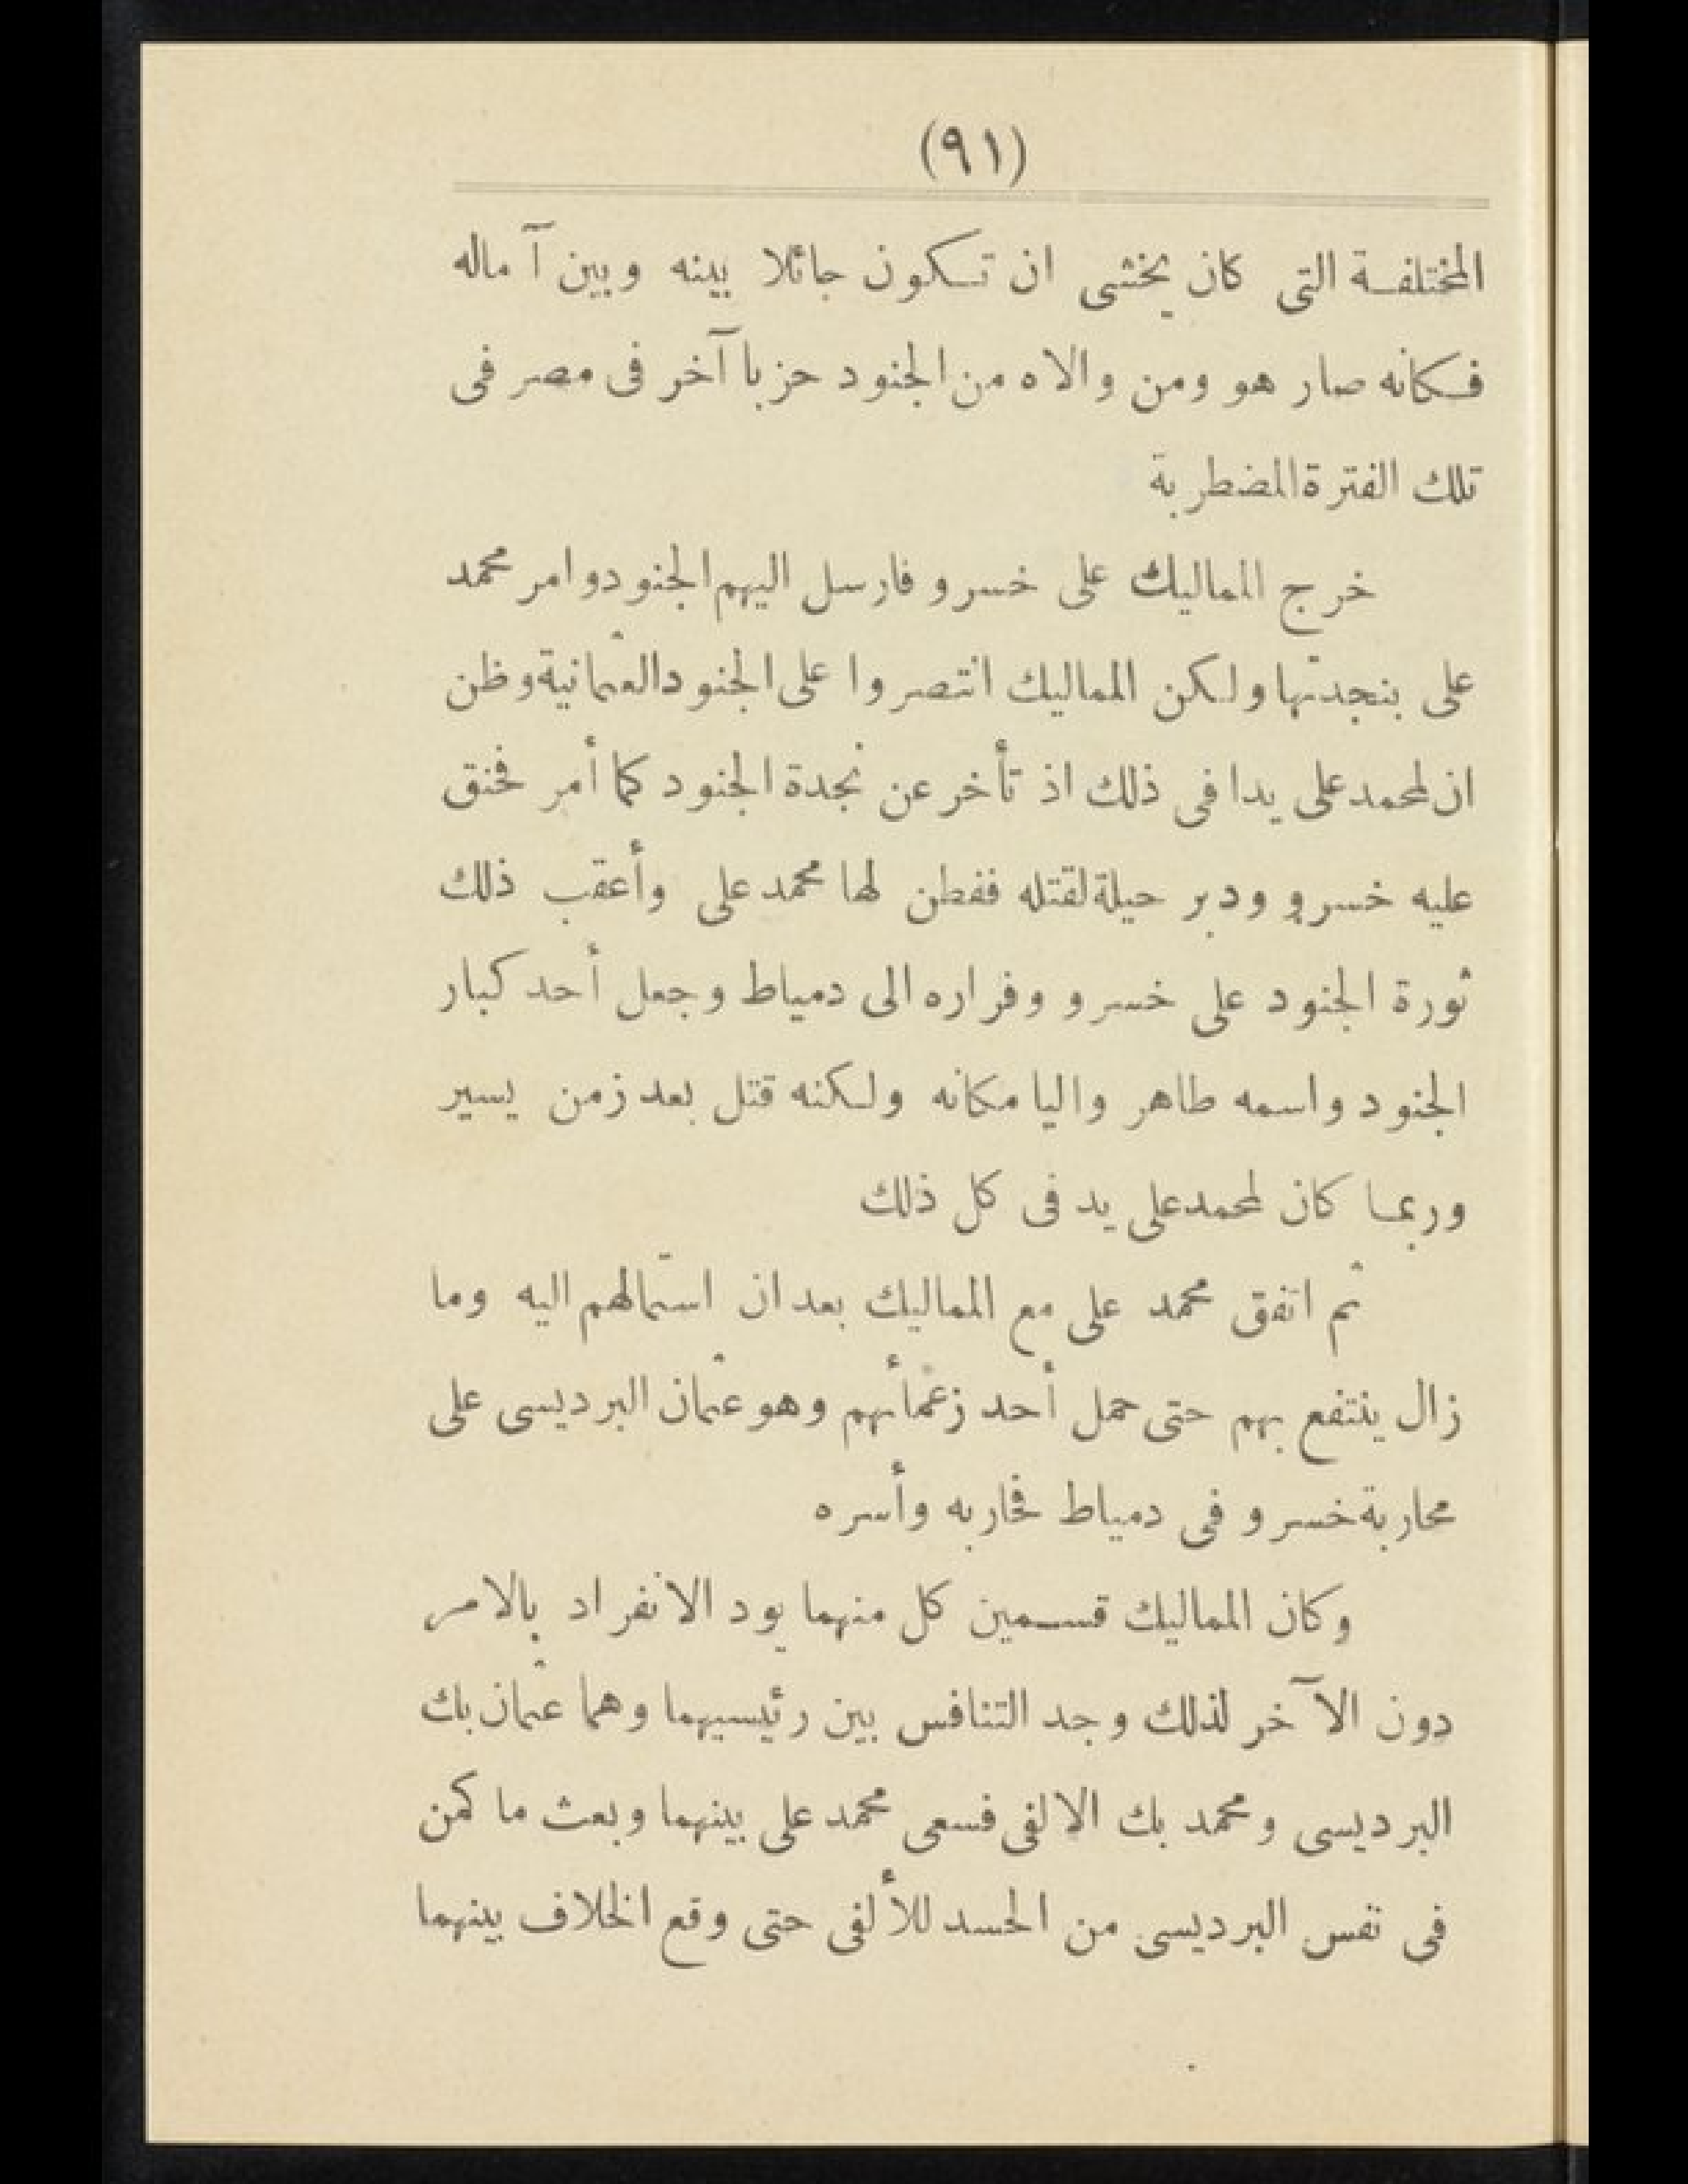 (٩١)
المختلفة التى كان يخشى ان تكون حائلا بينه وبين آماله
فكانه صار هو ومن والاه من الجنود حزبا آخر فى مصر فى
تلك الفترة المضطربة
خرج المماليك على خسرو فارسل اليهم الجنود وامر محمد
على بنجدتها ولكن المماليك انتصروا على الجنود العثمانية وظن
ان لمحمد على يدا فى ذلك اذ تأخر عن نجدة الجنود كما أمر فخنق
عليه خسرو ودبر حيلة لقتله ففطن لها محمد على وأعقب ذلك
ثورة الجنود على خسرو وفراره الى دمياط وجعل أحد كبار
الجنود واسمه طاهر واليا مكانه ولكنه قتل بعد زمن يسير
وربما كان لمحمد على يد فى كل ذلك
ثم اتفق محمد على مع المماليك بعد ان استمالهم اليه وما
زال ينتفع بهم حتى حمل أحد زعمأئهم وهو عثمان البرديسى على
محاربة خسرو فى دمياط فحاربه وأسره
وكان المماليك قسمين كل منهما يود الانفراد بالامر
دون الآخر لذلك وجد التنافس بين رئيسيهما وهما عثمان بك
البرديسى ومحمد بك الالفى فسعى محمد على بينهما وبعث ما كمن
فى نفس البرديسى من الحسد للألفى حتى وقع الخلاف بينهما